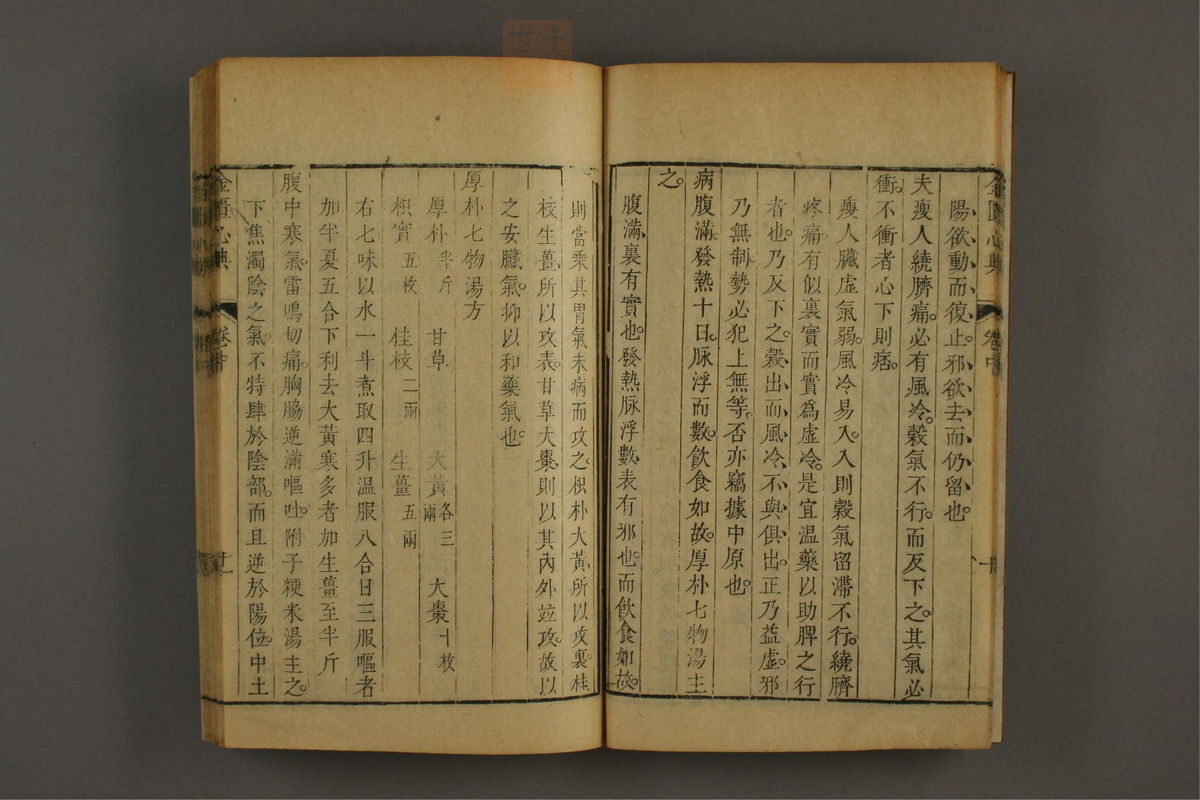 陽欲動而復止。邪欲去而仍留也。
夫瘦人繞臍痛。必有風冷。穀氣不行。而反下之。其氣必
衝。不衝者心下則痞。
瘦人臟虛氣弱。風冷易入。入則穀氣留滯不行。繞臍
疼痛有似裏實而實爲虛冷。是宜溫藥以助脾之行
者也。乃反下之。穀出而風冷不與俱出。正乃益虛。邪
乃無制。勢必犯上無等。否亦竊據中原也。
病腹滿。發熱十日。脉浮而數。飲食如故。厚朴七物湯主
之。
腹滿。裏有實也。發熱脉浮數。表有邪也。而飲食如故。
則當乘其胃氣未病而攻之。枳朴大黃。所以攻裏。桂
枝生薑。所以攻表。甘草大棗。則以其內外竝攻。故以
之安臟氣。抑以和藥氣也。
厚朴七物湯方
厚朴半斤 甘草 大黃各三兩 大棗十枚
枳實五枚 桂枝二兩 生薑五兩
右七味以水一斗煮取四升温服八合日三服嘔者
加半夏五合下利去大黃寒多者加生薑至半斤
腹中寒氣。雷鳴切痛。胸脇逆滿嘔吐。附子粳米湯主之。
下焦濁陰之氣。不特肆於陰部。而且逆於陽位。中土
金匱心典 卷中
金匱心典 卷中 十一